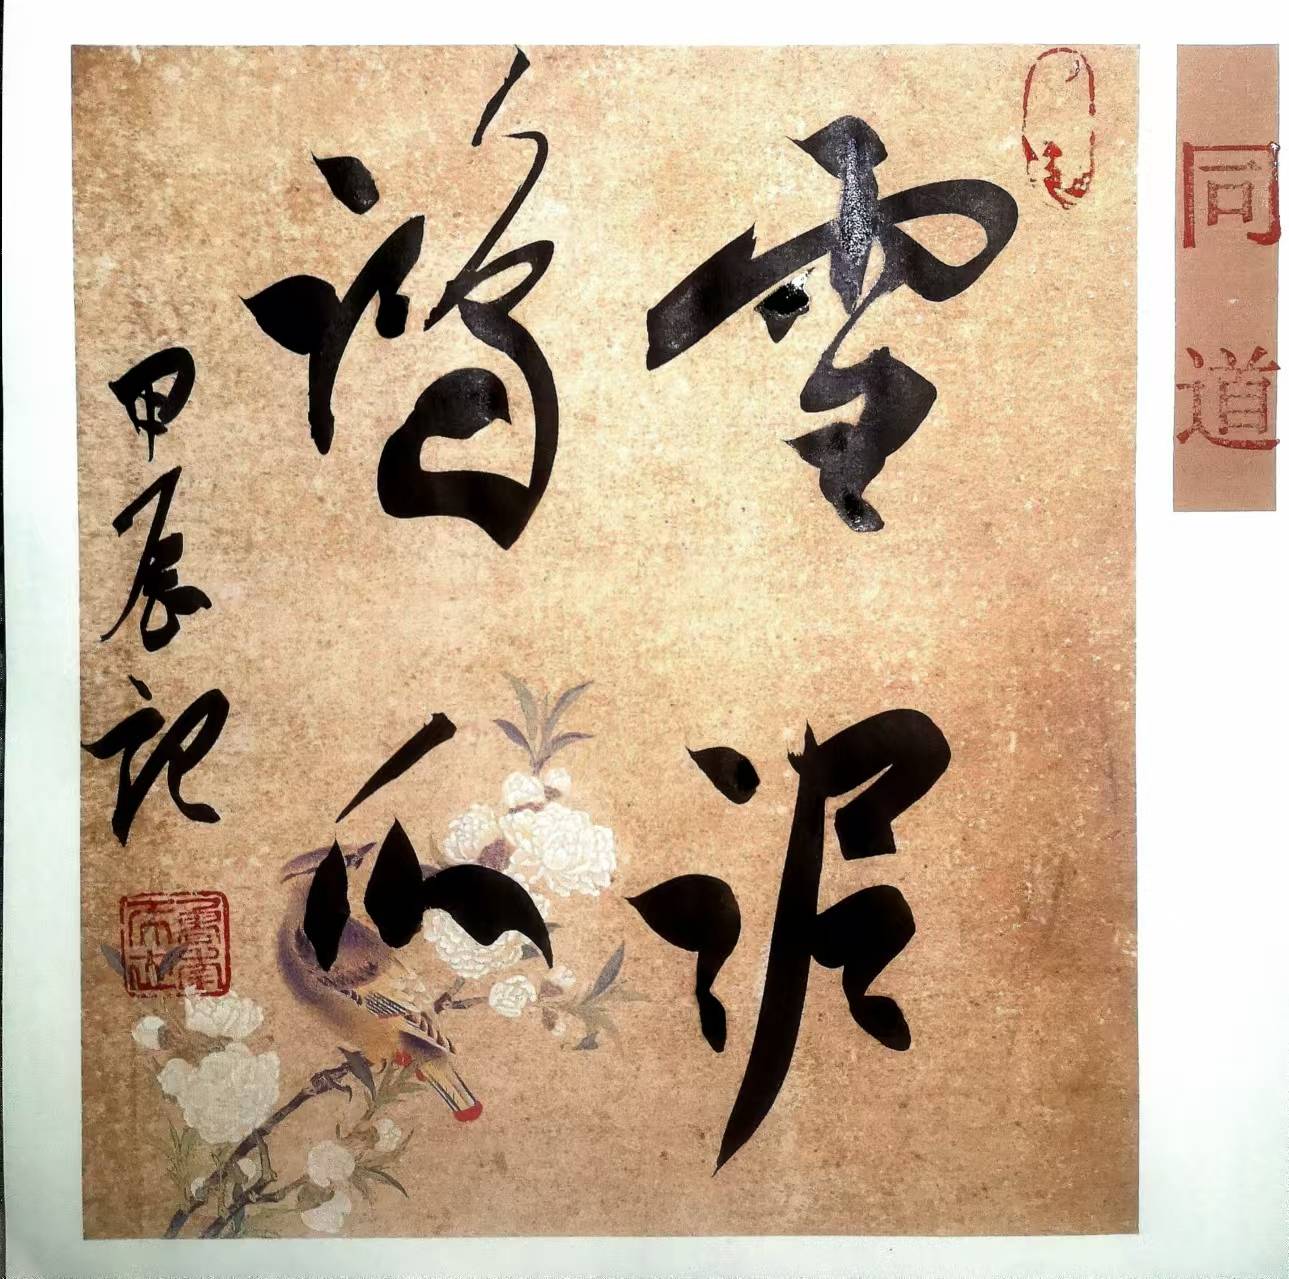 同道
雪泥
鸿爪
甲辰记